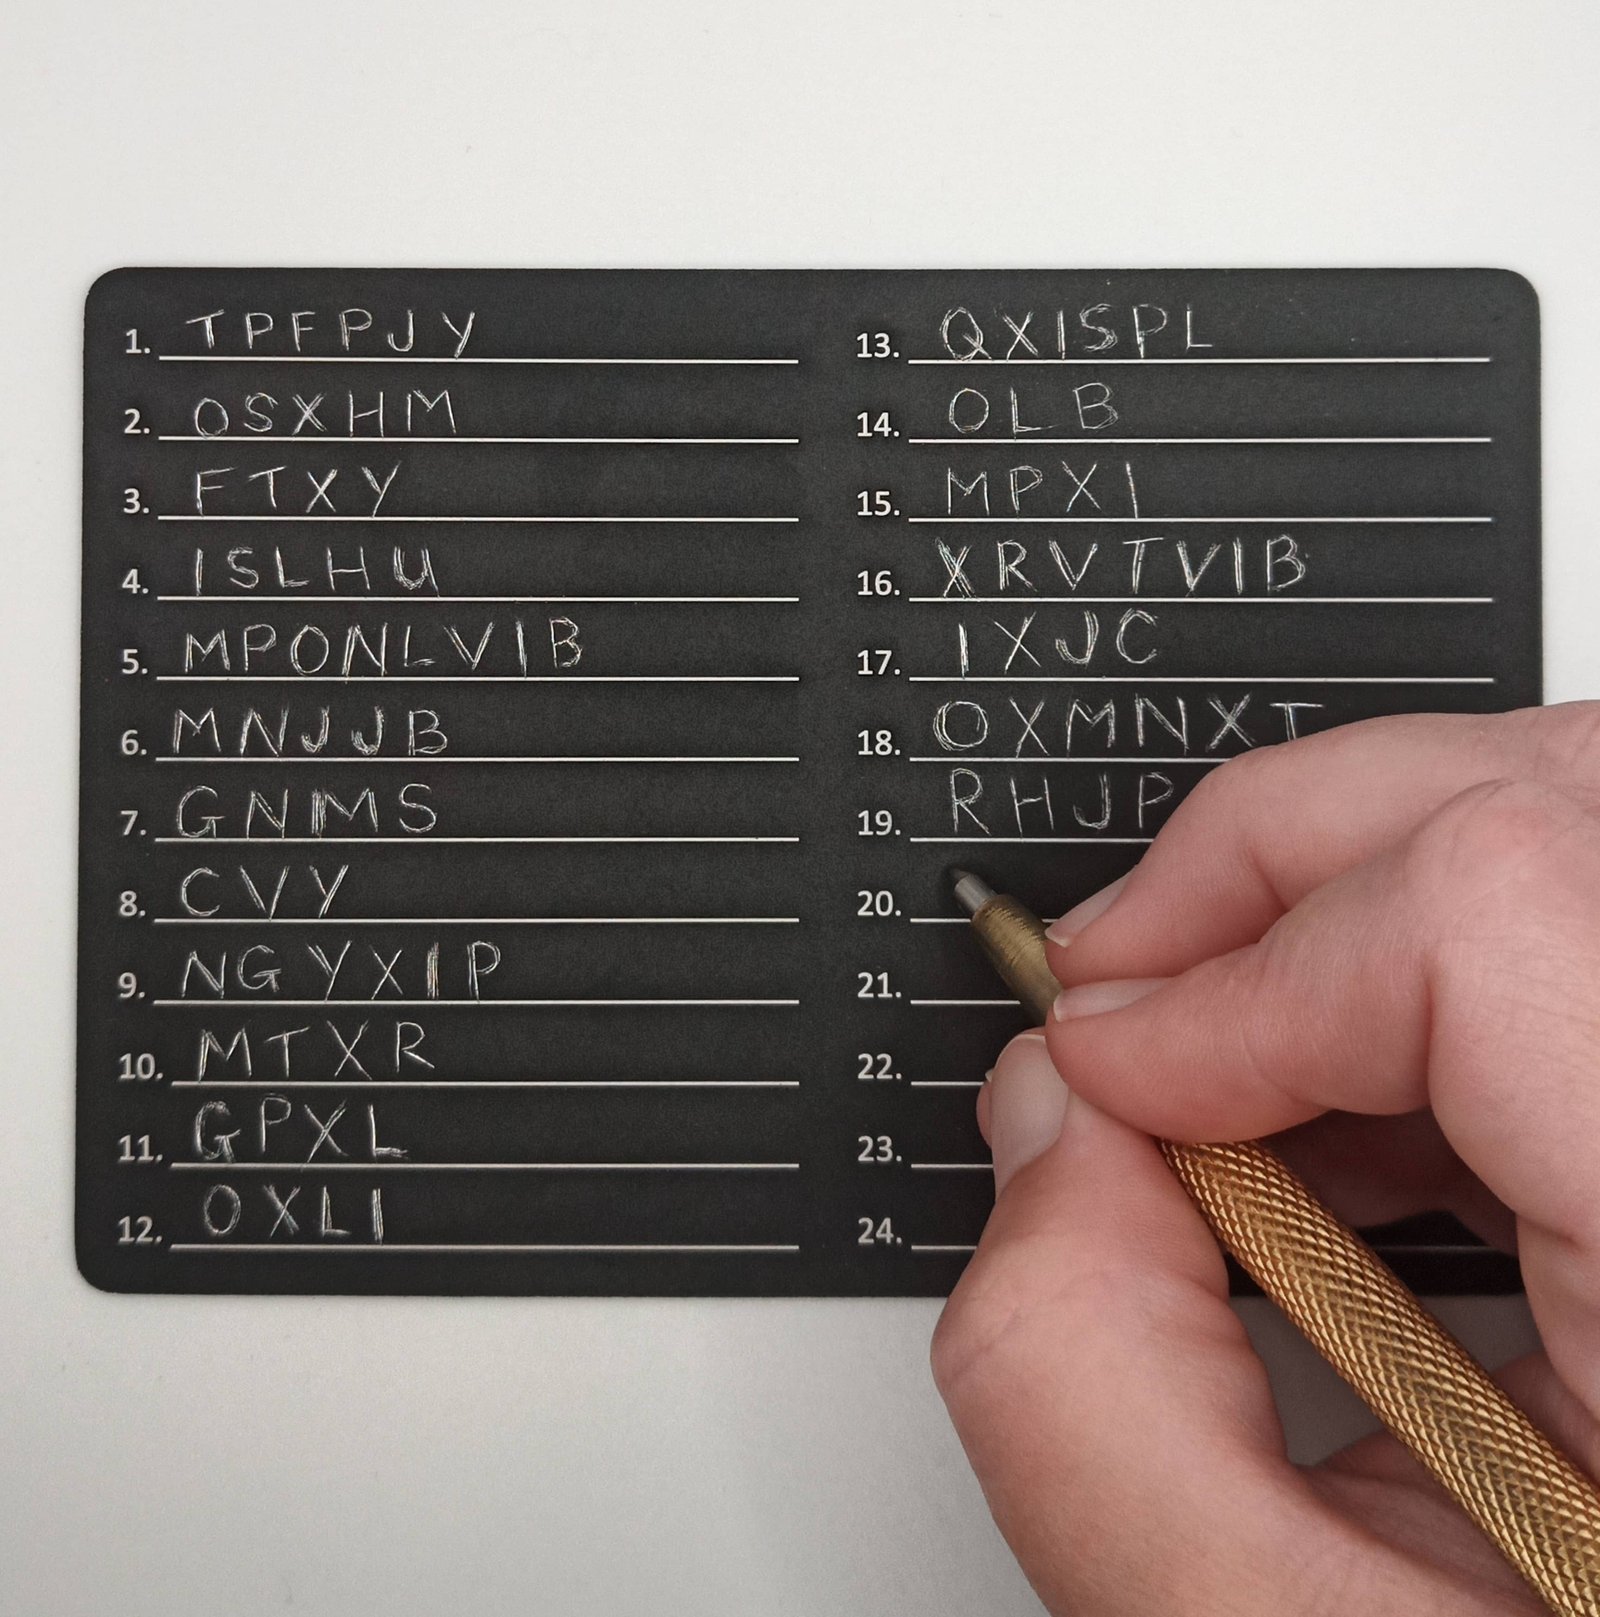 1. TPFPJY
2. OSXHM
3. FTXY
4. ISLHU
5. MPONLVIB
6. MNJJB
7. GNMS
8. CVY
9. NGYXIP
10. MTXR
11. GPXL
12. OXLI
13. QXISPL
14. OLB
15. MPXI
16. XRVTVIB
17. IXJC
18. OXMNXT
19. RHJP
20.
21.
22.
23.
24.